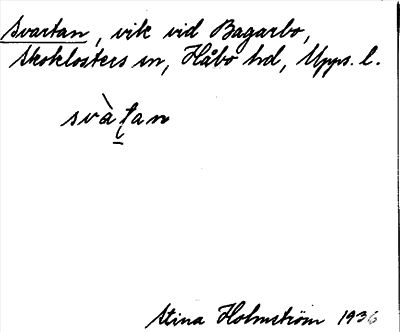 Svartan, vik vid Bagarbo,
Skoklosters sn, Håbo hd, Upps. l.
svàt̠an
Stina Holmström 1936